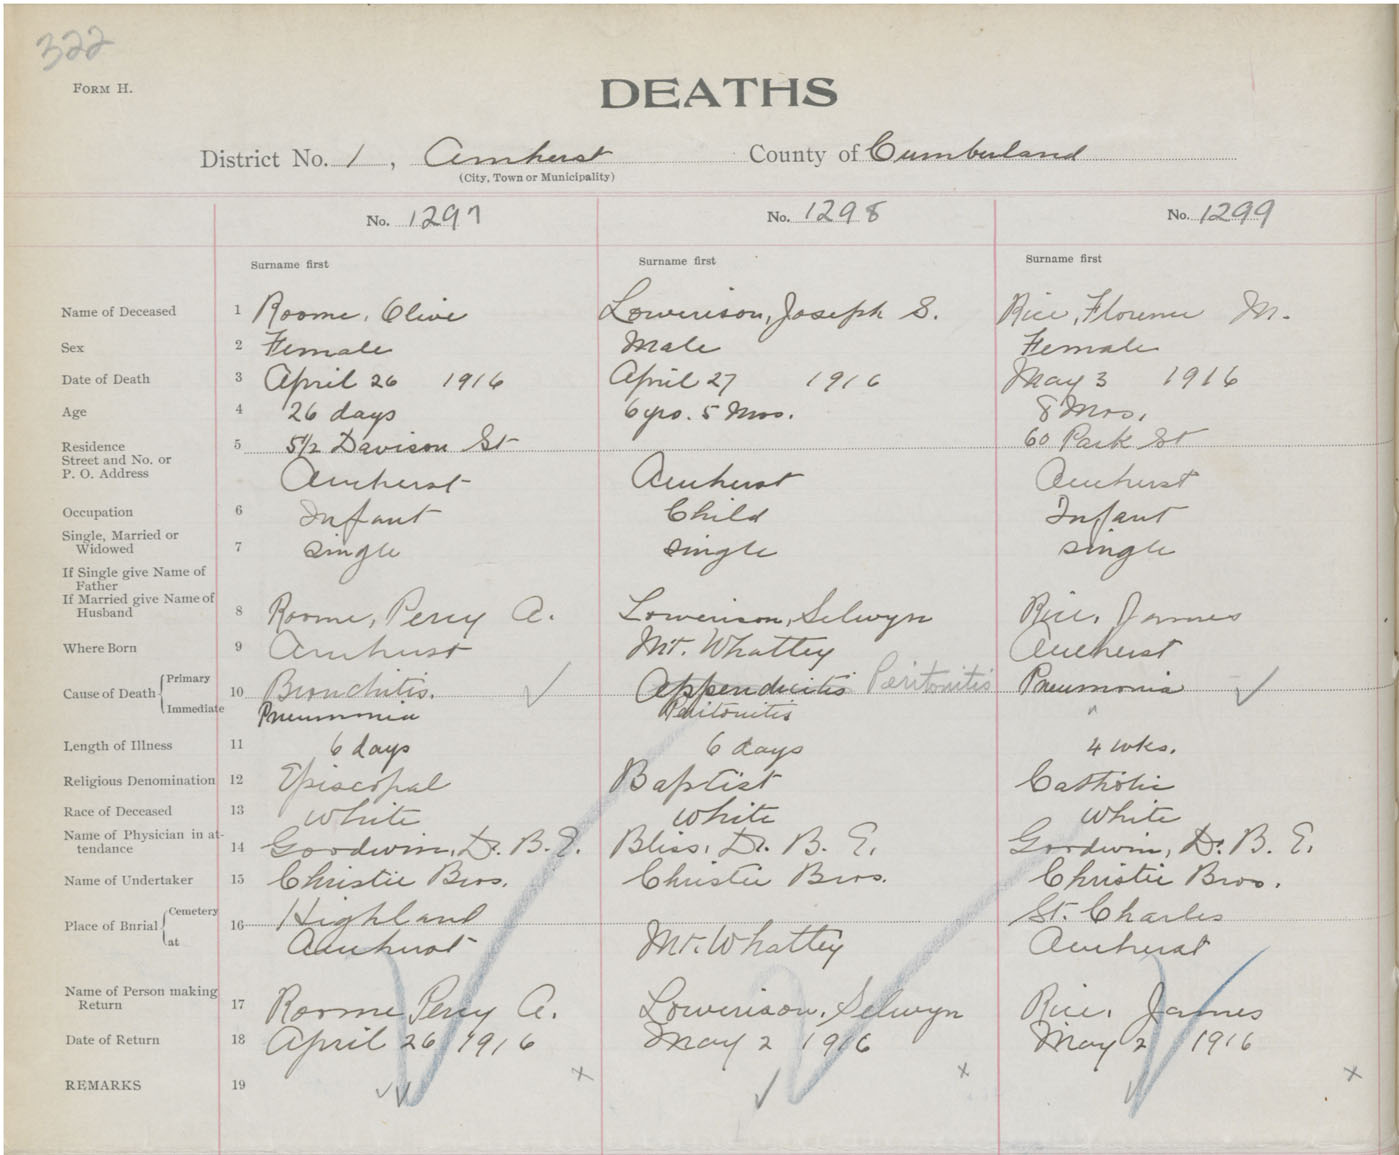 322
FORM H.
DEATHS
District No. 1, Amherst County of Cumberland
(City, Town or Municipality)
No. 1297 No. 1298 No. 1299
Surname first Surname first Surname first
Name of Deceased 1 Roome, Olive Lowerison, Joseph S. Rice, Florence M.
Sex 2 Female Male Female
Date of Death 3 April 26 1916 April 27 1916 May 3 1916
Age 4 26 days 6 yrs. 5 Mos. 8 Mos.
Residence 5 51/2 Davison St 60 Park St
Street and No. or
P. O. Address Amherst Amherst Amherst
Occupation 6 Infant Child Infant
Single, Married or
Widowed 7 single single single
If Single give Name of
Father
If Married give Name of
Husband 8 Roome, Percy A. Lowerison, Selwyn Rice, James
Where Born 9 Amherst Mt. Whattey Amherst
Cause of Death { Primary 10 Bronchitis. ✓ Appendicitis Peritonitis Pneumonia ✓
Immediate Pneumonia Peritonitis "
Length of Illness 11 6 days 6 days 4 wks.
Religious Denomination 12 Episcopal Baptist Catholic
Race of Deceased 13 White White White
Name of Physician in at-
tendance 14 Goodwin, Dr. B. E. Bliss, Dr. B. E. Goodwin, Dr. B. E.
Name of Undertaker 15 Christie Bros. Christie Bros. Christie Bros.
Place of Burial { Cemetery 16 Highland St. Charles
at Amherst Mt. Whattey Amherst
Name of Person making
Return 17 Roome Percy A. Lowerison, Selwyn Rice, James
Date of Return 18 April 26 1916 May 2 1916 May 2 1916
REMARKS 19 ✓✓ x ✓ x ✓ x